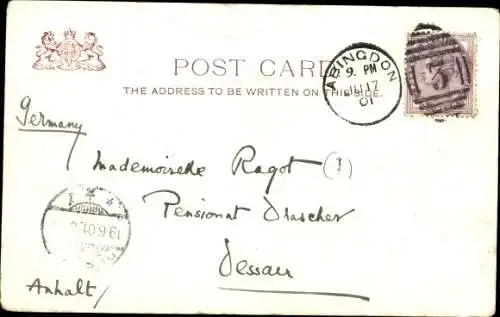 POST CARD
THE ADDRESS TO BE WRITTEN ON THIS SIDE.
ABINGDON
9. PM
JU 17
01
3
Germany
Mademoiselle Ragot (1)
Pensionat Drascher
Dessau
19.6.01
Anhalt